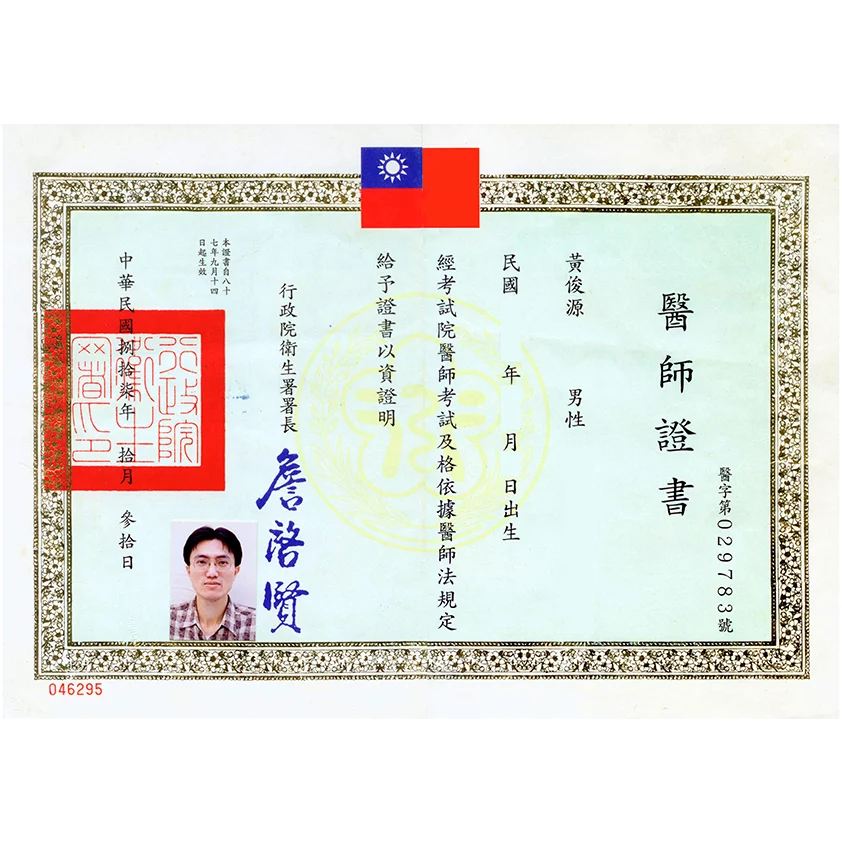 醫師證書
醫字第029783號
黃俊源 男性
民國 年 月 日出生
經考試院醫師考試及格依據醫師法規定
給予證書以資證明
行政院衛生署署長
詹啓賢
本證書自八十
七年九月十四
日起生效
中華民國捌拾柒年 拾月 參拾日
行政院
衛生
署印
046295